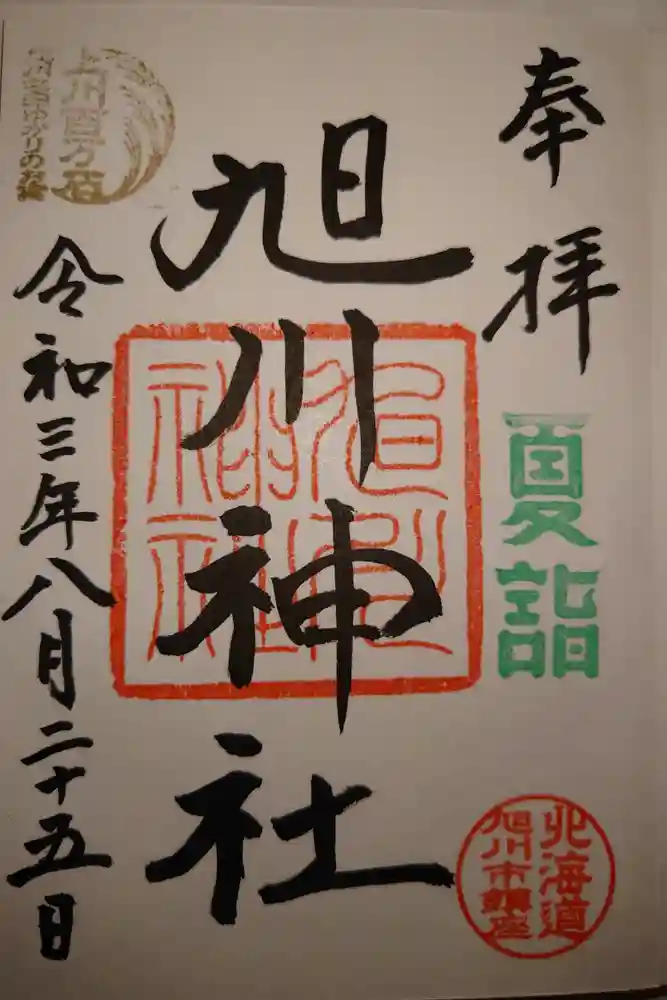 奉拝
夏詣
北海道
旭川市鎮座
旭川神社
旭川神社
上川百万石
令和三年八月二十五日